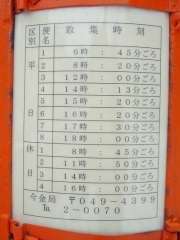 区別 便名 取集時刻
平日
1 6時 45分ごろ
2 8時 20分ごろ
3 12時 00分ごろ
4 14時 13分ごろ
5 15時 20分ごろ
6 16時 20分ごろ
7 17時 30分ごろ
8 18時 00分ごろ
休日
1 8時 00分ごろ
2 11時 50分ごろ
3 14時 00分ごろ
4 16時 00分ごろ
今金局 〒049-4399
℡ 2-0070